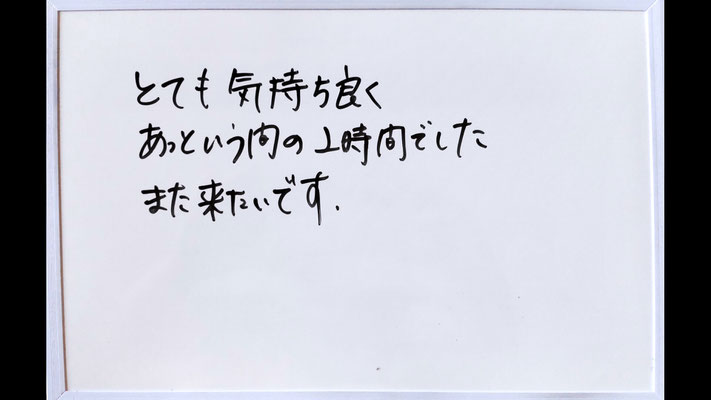 とても気持ち良く
あっという間の1時間でした
また来たいです.